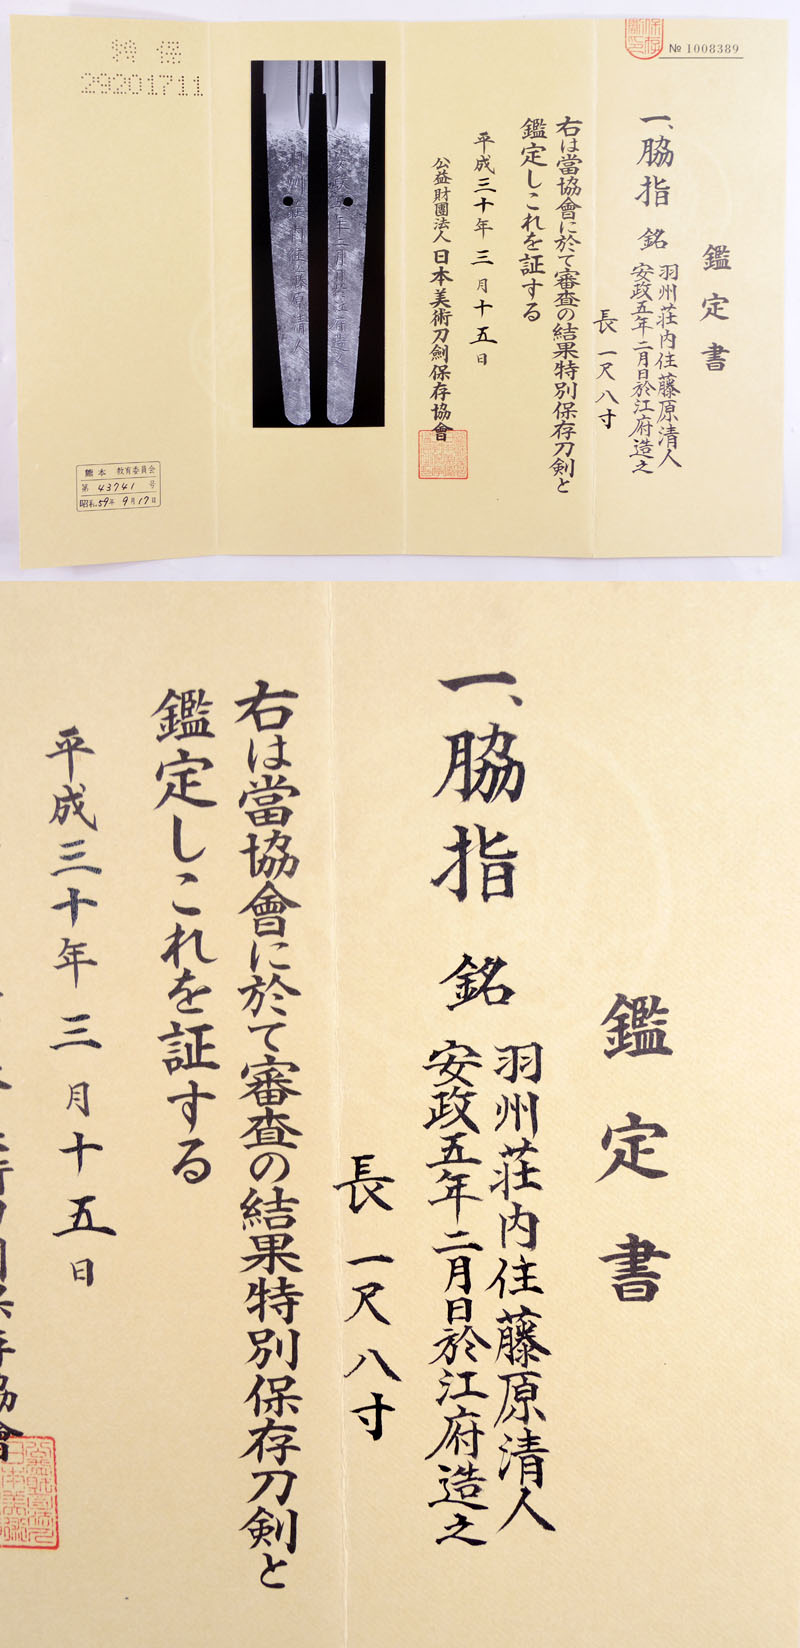 № 1008389
鑑定書
一、脇指 銘 羽州荘内住藤原清人
安政五年二月日於江府造之
長一尺八寸
右は當協會に於て審査の結果特別保存刀剣と
鑑定しこれを証する
平成三十年三月十五日
公益財團法人日本美術刀劍保存協會
特保
29201711
熊本 教育委員会
第 43741 号
昭和59年9月17日
鑑定書
一、脇指 銘 羽州荘内住藤原清人
安政五年二月日於江府造之
長一尺八寸
右は當協會に於て審査の結果特別保存刀剣と
鑑定しこれを証する
平成三十年三月十五日